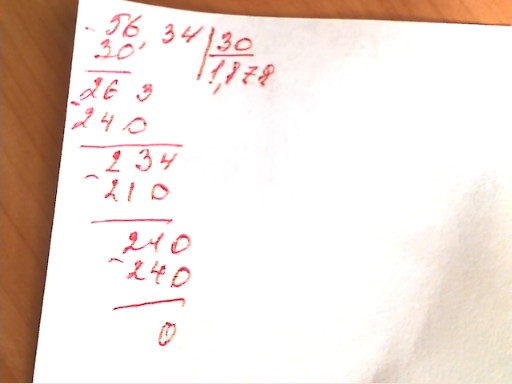 - 56 34 | 30
30 1,878
263
- 240
234
- 210
240
- 240
0